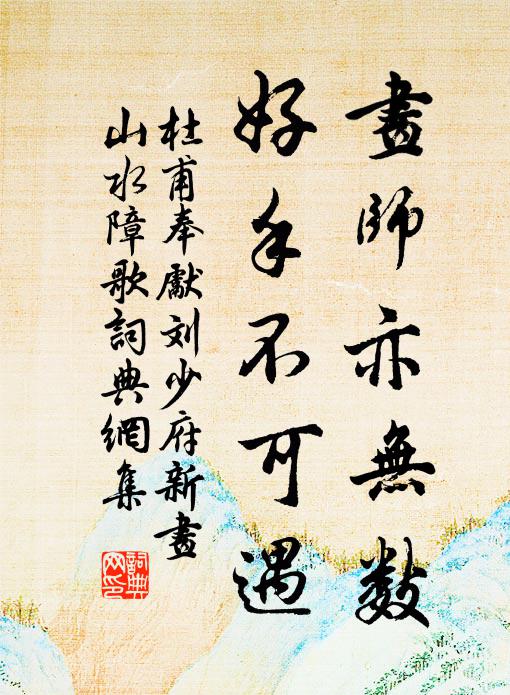 畫師亦無數
好手不可遇
杜甫奉獻刘少府新畫
山水障歌詞典網集
詞典
网印